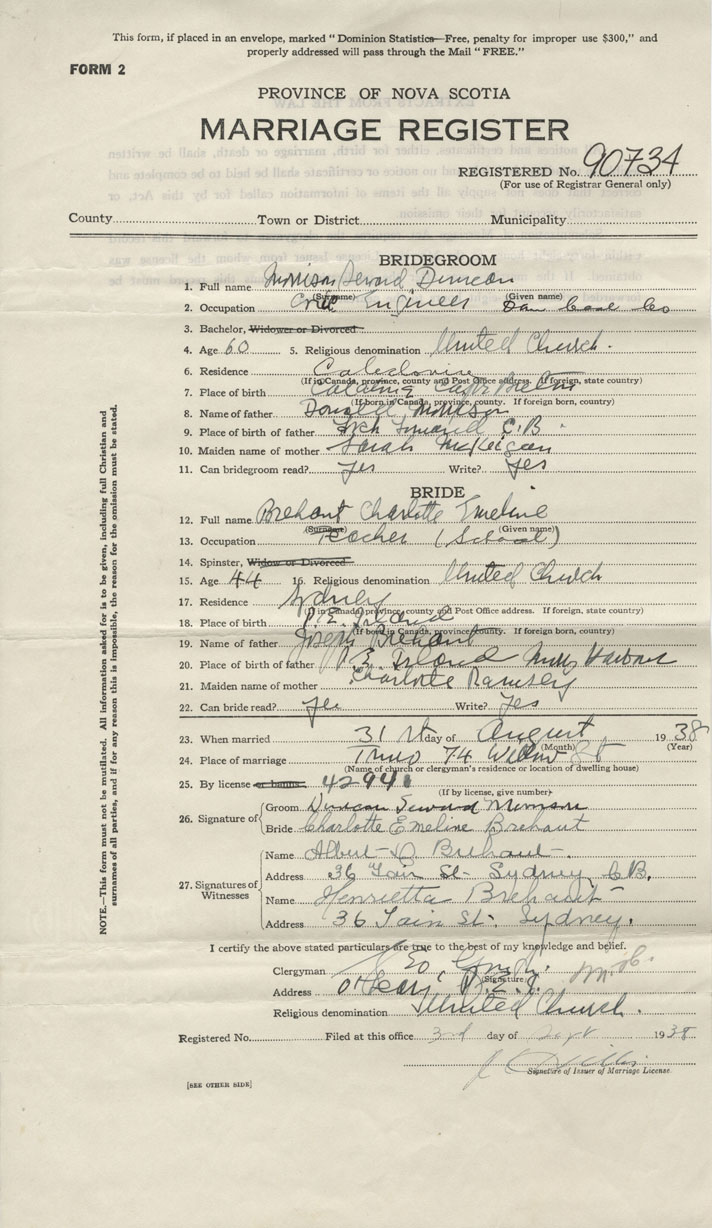 This form, if placed in an envelope, marked " Dominion Statistics—Free, penalty for improper use $300," and
properly addressed will pass through the Mail " FREE."
FORM 2
PROVINCE OF NOVA SCOTIA
MARRIAGE REGISTER
REGISTERED No. 90734
(For use of Registrar General only)
County Town or District Municipality
BRIDEGROOM
1. Full name Morrison Seward Duncan
(Surname) (Given name)
2. Occupation Civil Engineer Dom Coal Co
3. Bachelor, Widower or Divorced
4. Age 60 5. Religious denomination United Church.
6. Residence Caledonia
(If in Canada, province, county and Post Office address. If foreign, state country)
7. Place of birth
(If born in Canada, province, county. If foreign born, country)
8. Name of father Donald Morrison
9. Place of birth of father Loch Lomond C.B.
10. Maiden name of mother Sarah McKeigan
11. Can bridegroom read? Yes Write? Yes
BRIDE
12. Full name Brehaut Charlotte Emeline
(Surname) (Given name)
13. Occupation Teacher (School)
14. Spinster, Widow or Divorced
15. Age 44 16. Religious denomination United Church
17. Residence Sydney
(If in Canada, province, county and Post Office address. If foreign, state country)
18. Place of birth P.E. Island
(If born in Canada, province, county. If foreign born, country)
19. Name of father Joseph Brehaut
20. Place of birth of father P.E. Island Murray Harbour
21. Maiden name of mother Charlotte Ramsey
22. Can bride read? Yes Write? Yes
23. When married 31st day of August 1938
(Month) (Year)
24. Place of marriage Truro 74 Willow St
(Name of church or clergyman's residence or location of dwelling house)
25. By license or banns 42941
(If by license, give number)
26. Signature of Groom Duncan Seward Morrison
Bride Charlotte Emeline Brehaut
27. Signatures of Witnesses
Name Albert D. Brehaut
Address 36 Tain St. Sydney C.B.
Name Henrietta Brehaut
Address 36 Tain St. Sydney.
I certify the above stated particulars are true to the best of my knowledge and belief.
Clergyman
(Signature)
Address O'Leary P.E.I.
Religious denomination United Church.
Registered No. Filed at this office 3rd day of Sept 1938
Signature of Issuer of Marriage License.
[SEE OTHER SIDE]
NOTE.—This form must not be mutilated. All information asked for is to be given, including full Christian and
surnames of all parties, and if for any reason this is impossible, the reason for the omission must be stated.